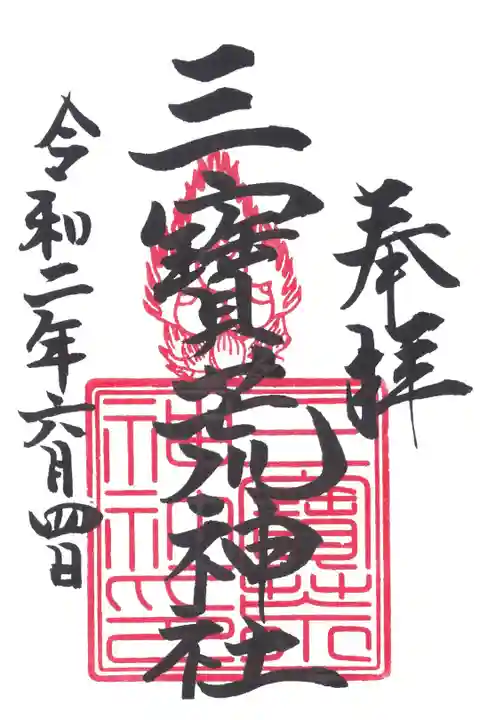 奉拝
三寳荒神社
令和二年六月四日